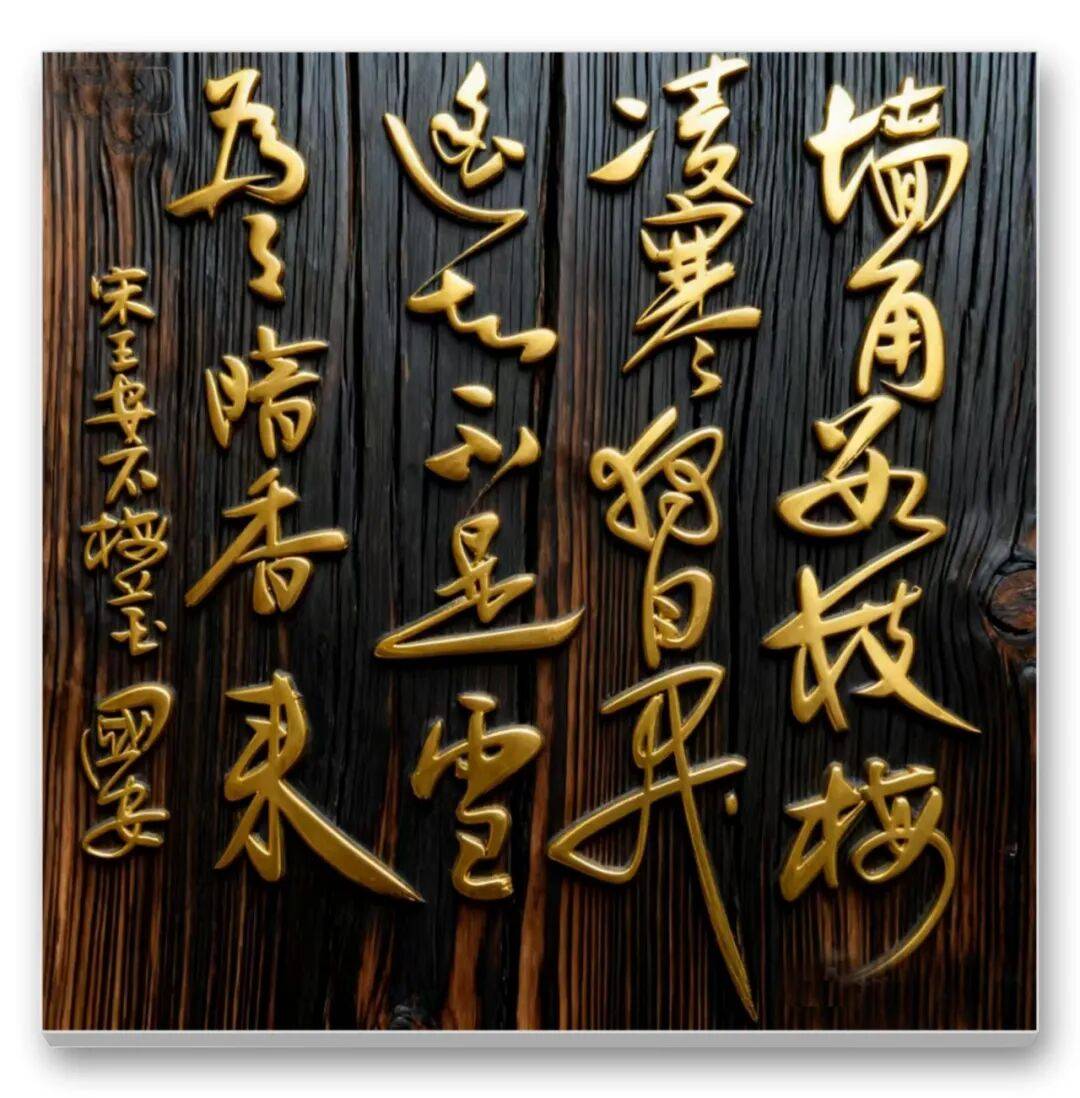 墙角数枝梅
凌寒独自开
遥知不是雪
为有暗香来
宋王安石梅 國安